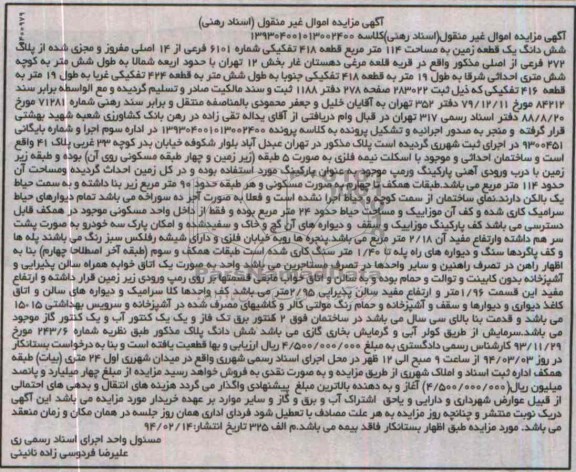 آگهی مزایده اموال غیر منقول (اسناد رهنی)
آگهی مزایده اموال غیر منقول(اسناد رهنی)کلاسه ۱۳۹۳۰۴۰۰۱۰۱۳۰۰۲۴۰۰
شش دانگ یک قطعه زمین به مساحت ۱۱۴ متر مربع قطعه ۴۱۸ تفکیکی شماره ۶۱۰۱ فرعی از ۱۴ اصلی مفروز و مجزی شده از پلاک
۲۷۲ فرعی از اصلی مذکور واقع در قریه قلعه مرغی دهستان غار بخش ۱۲ تهران با حدود اربعه شمالا به طول شش متر به کوچه
شش متری احداثی شرقا به طول ۱۹ متر به قطعه ۴۱۸ تفکیکی جنوبا به طول شش متر به قطعه ۴۲۴ تفکیکی غربا به طول ۱۹ متر به
قطعه ۴۱۶ تفکیکی که ذیل ثبت ۲۸۳۰۲۲ صفحه ۲۷۸ دفتر ۱۱۸۸ ثبت و سند مالکیت صادر و تسلیم گردیده و مع الواسطه برابر سند
۸۴۲۱۲ مورخ ۷۹/۱۲/۱۱ دفتر ۳۵۲ تهران به آقایان خلیل و جعفر محمودی بالمناصفه منتقل و برابر سند رهنی شماره ۷۱۲۸۱ مورخ
۸۸/۸/۲۰ دفتر اسناد رسمی ۳۱۷ تهران در قبال وام دریافتی از آقای یداله تقی زاده در رهن بانک کشاورزی شعبه شهید بهشتی
قرار گرفته و منجر به صدور اجرائیه و تشکیل پرونده به کلاسه پرونده ۱۳۹۳۰۴۰۰۱۰۱۳۰۰۲۴۰۰ در اداره سوم اجرا و شماره بایگانی
۹۳۰۰۴۵۱ در اجرای ثبت شهرری گردیده است پلاک مذکور در تهران عبدل آباد بلوار شکوفه خیابان بدر کوچه ۳۳ غربی پلاک ۴۱ واقع
است و ساختمان احداثی و موجود با اسکلت نیمه فلزی به صورت ۵ طبقه (زیر زمین و چهار طبقه مسکونی روی آن) بوده و طبقه زیر
زمین با درب ورودی آهنی پارکینگ ورمپ موجود به عنوان پارکینگ مورد استفاده بوده و در کل زمین احداث گردیده ومساحت آن
حدود ۱۱۴ متر مربع می باشد.طبقات همکف تا چهارم به صورت مسکونی و هر طبقه حدود ۹۰ متر مربع زیر بنا داشته و به سمت حیاط
یک بالکن دارند.نمای ساختمان از سمت کوچه و حیاط اجرا نشده است و فعلا به صورت آجر ده سوراخه می باشد تمام دیوارهای حیاط
سرامیک کاری شده و کف آن موزاییک و مساحت حیاط حدود ۲۴ متر مربع بوده و فقط از داخل واحد مسکونی موجود در همکف قابل
دسترسی می باشد کف پارکینگ موزاییک و سقف و دیواره های آن گچ و خاک و سفیدشده و امکان پارک سه خودرو به صورت پشت
سر هم داشته وارتفاع مفید آن ۲/۱۸ متر مربع می باشد.پنجره ها روبه خیابان فلزی و دارای شیشه رفلکس سبز رنگ می باشند پله ها
و کف پاگردها سنگ و دیواره های راه پله تا ۱/۴۰ متر سنگ کاری شده است طبقات همکف و سوم (طبقه آخر اصطلاحا چهارم) بنا به
اظهار راهن در تصرف راهنین و سایر واحدها در تصرف مستاجرین می باشد.واحد به صورت یک اتاق خوابه همراه سالن پذیرایی و
آشپزخانه بدون کابینت و توالت و حمام بوده و سالن و اتاق خواب مابقی قسمتها بر روی رمپ ورودی زیر زمین قرار داشته و ارتفاع
مفید این قسمت ۱/۹۶متر و ارتفاع مفید سالن پذیرایی ۲/۹۵متر می باشد کف واحدها کلا سرامیک و دیواره های سالن و اتاق
کاغذ دیواری و دیوارها و سقفه و آشپزخانه و حمام رنگ مولتی کالر و کاشیهای مصرف شده در آشپزخانه و سرویس بهداشتی ۱۵*۱۵
می باشد و قدمت بنا بالای سی سال می باشد در ساختمان فوق ۲ کنتور برق تک فاز و یک یک کنتور آب و یک کنتور گاز موجود
می باشد.سرمایش از طریق کولر آبی و گرمایش بخاری گازی می باشد شش دانگ پلاک مذکور طبق نظریه شماره ۲۴۳/۶ مورخ
۹۳/۱۱/۲۹ کارشناس رسمی دادگستری به مبلغ ۴/۵۰۰/۰۰۰/۰۰۰ ریال ارزیابی و بها قطعیت یافته است و بنا به درخواست بستانکار
در روز ۹۴/۰۳/۰۳ از ساعت ۹ صبح الی ۱۲ ظهر در محل اجرای اسناد رسمی شهرری واقع در میدان شهرری اول ۲۴ متری (بیات) طبقه
همکف اداره ثبت اسناد و املاک شهرری از طریق مزایده و به صورت نقدی به فروش خواهد رسید مزایده از مبلغ چهار میلیارد و پانصد
میلیون ریال(۴/۵۰۰/۰۰۰/۰۰۰) آغاز و به دهنده بالاترین مبلغ پیشنهادی واگذار می گردد هزینه های انتقال و بدهی های احتمالی
از قبیل عوارض شهرداری و دارایی و یاحق اشتراک آب و برق و گاز و سایر موارد بر عهده خریدار مورد مزایده می باشد این آگهی
دریک نوبت منتشر و چنانچه روز مزایده به هر علت مصادف با تعطیل شود فردای اداری همان روز جلسه در همان مکان و زمان منعقد
می باشد. مورد مزایده طبق اظهار بستانکار فاقد بیمه می باشد.م الف ۳۲۵ تاریخ انتشار:۹۴/۰۲/۱۴
مسئول واحد اجرای اسناد رسمی ری
علیرضا فردوسی زاده نائینی